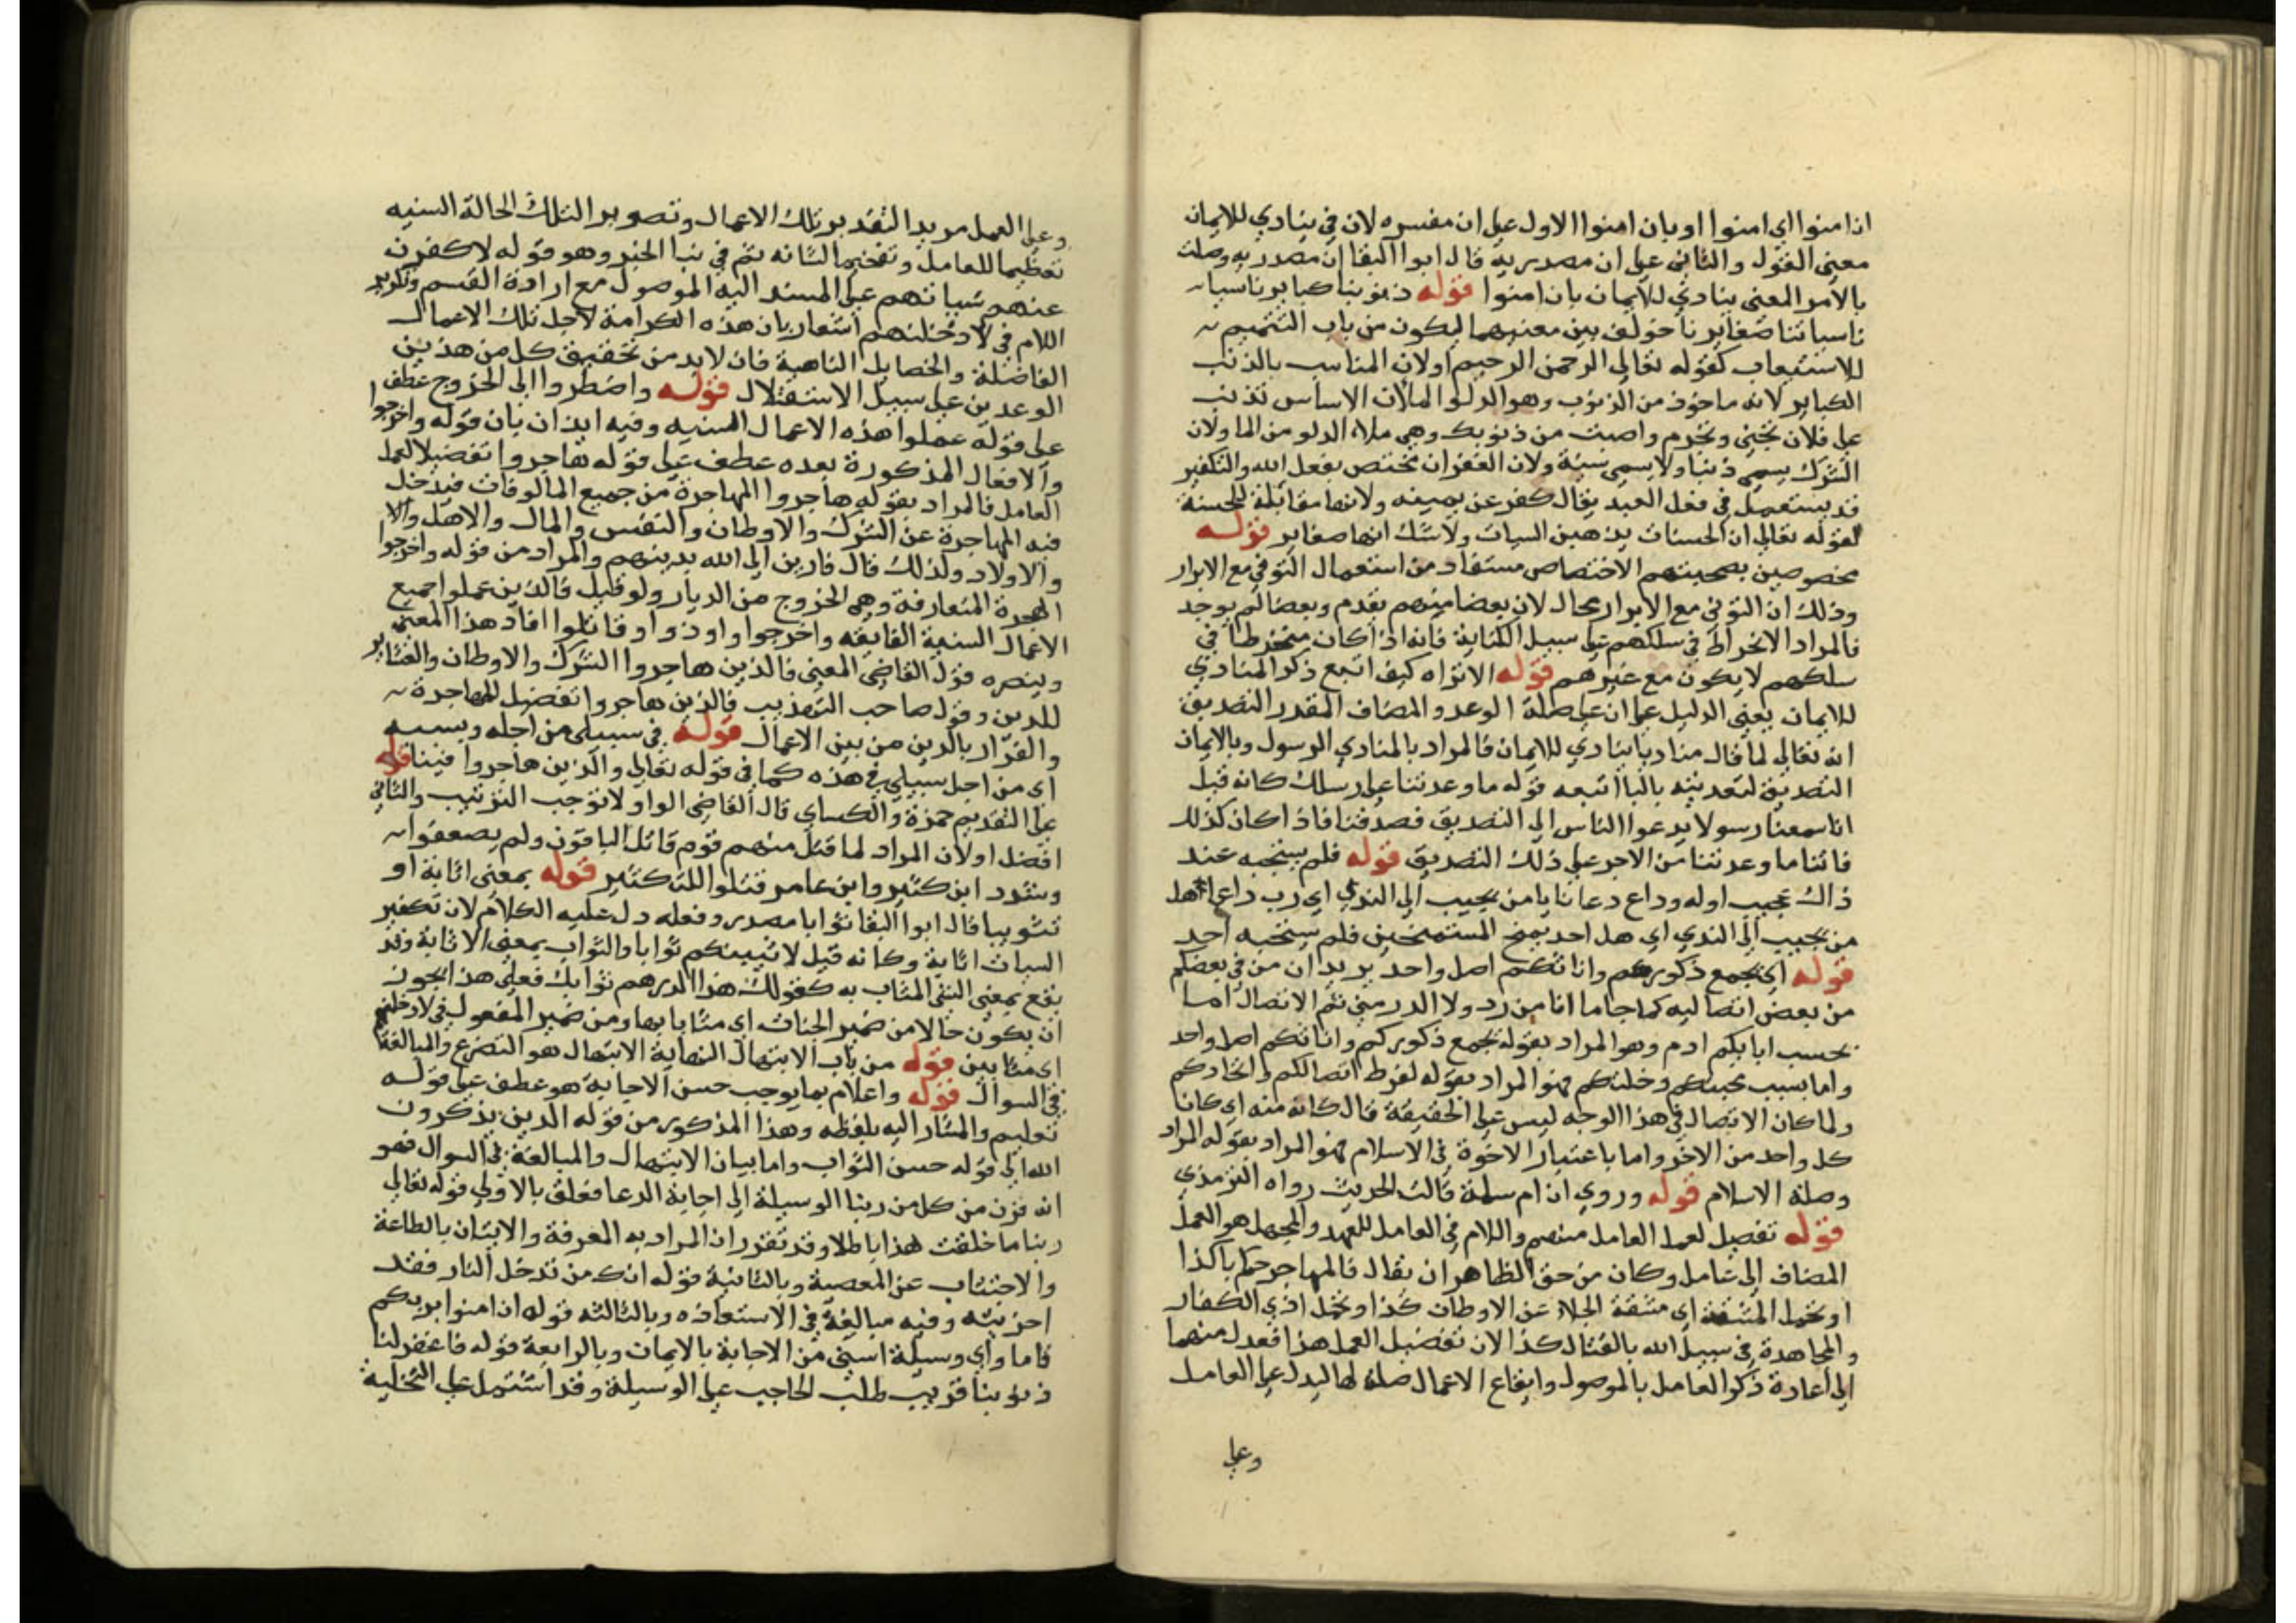 اذامنوا اي امنوا او بان امنوا الاول علي ان مفسره لان في ينادي للايمان
معني القول والثاني علي ان مصدرية قال ابوا البقا ان مصدريه وصلت
بالامر المعني ينادي للايمان بان امنوا قوله ذنوبنا كبايرنا سيا
ناسياتنا صغايرنا خولف بين معنيهما ليكون من باب التتميم
للاستيعاب كقوله تعالي الرحمن الرحيم اولان المناسب بالذنب
الكباير لانه ماخوذ من الذنوب وهو الدلو الملأن الاساس تذنب
علي فلان تجني وتجرم واصبت من ذنوبك وهي ملاء الدلو من الما ولان
الشرك يسمي ذنبا ولا يسمي سيئة ولان الغفران مختص بفعل الله والتكفير
قد يستعمل في فعل العبد يقال كفر عن يمينه ولانها مقابلة للحسنة
لقوله تعالي ان الحسنات يذهبن السيات ولا شك انها صغاير قوله
مخصوصين بصحبتهم الاختصاص مستفاد من استعمال التوفي مع الابرار
وذلك ان التوفي مع الابرار محال لان بعضا منهم تقدم وبعضا لم يوجد
فالمراد الانخراط في سلكهم علي سبيل الكناية فانه اذا كان منخرطا في
سلكهم لا يكون مع غيرهم قوله الا تراه كيف اتبع ذكر المنادي
للايمان يعني الدليل علي ان علي صلة الوعد والمضاف المقدر التصديق
انه تعالي لما قال مناديا ينادي للايمان فالمراد بالمنادي الرسول وبالايمان
التصديق لتعديته بالبا اتبعه قوله ما وعدتنا علي رسلك كانه قيل
انا سمعنا رسولا يدعوا الناس الي التصديق فصدقنا فاذا كان كذلك
فاتنا ما وعدتنا من الاجر علي ذلك التصديق قوله فلم يستجبه عند
ذاك مجيب اوله وداع دعانا يا من يجيب الي الندي اي رب داع دعا هل
من يجيب الي الندي اي هل احد يمنح المستمنحين فلم يستجبه احد
قوله اي يجمع ذكوركم واناثكم اصل واحد يريد ان من في بعضكم
من بعض اتصاليه كما جا ما انا من دد ولا الدد مني ثم الاتصال اما
بحسب ابايكم ادم وهو المراد بقوله يجمع ذكوركم واناثكم اصل واحد
واما بسبب محبتكم وخلتكم فهو المراد بقوله لفرط اتصالكم واتحادكم
ولما كان الاتصال في هذا الوجه ليس علي الحقيقة قال كانه منه اي كان
كل واحد من الاخر واما باعتبار الاخوة في الاسلام فهو المراد بقوله المراد
وصلة الاسلام قوله وروي ان ام سلمة قالت الحديث رواه الترمذي
قوله تفصيل لعمل العامل منهم واللام في العامل للعهد والمجمل هو العمل
المضاف الي عامل وكان من حق الظاهر ان يقال فالمهاجر حكم باكذا
او تحمل المشقة اي مشقة الجلاء عن الاوطان كذا وتحمل اذي الكفار
والمجاهدة في سبيل الله بالقتال كذا لان تفضيل العمل هذا فعدل منهما
الي اعادة ذكر العامل بالموصول وايقاع الاعمال صلة لها ليدل علي العامل
وعلي
وعلي العمل مزيد التقدير تلك الاعمال وتصوير التلك الحالة السنيه
تعظيما للعامل وتفخيما لشانه ثم في بنا الخبر وهو قوله لاكفرن
عنهم سياتهم علي المسند اليه الموصول مع ارادة القسم وتكرير
اللام في لادخلنهم اشعار بان هذه الكرامة لاجل تلك الاعمال
الفاضلة والخصايل الناهية فان لابد من تحقيق كل من هذين
الوعدين علي سبيل الاستقلال قوله واضطروا الي الخروج عطف
علي قوله عملوا هذه الاعمال السنيه وفيه ايذان بان قوله واخرجوا
والافعال المذكورة بعده عطف علي قوله هاجروا تفصيلا لعمل
العامل فالمراد بقوله هاجروا المهاجرة من جميع المالوفات فيدخل
فيه المهاجرة عن الشرك والاوطان والنفس والمال والاهل والا
والاولاد ولذلك قال فارين الي الله بدينهم والمراد من قوله واخرجوا
الهجرة المتعارفة وهي الخروج من الديار ولو قيل فالذين عملوا جميع
الاعمال السنية الفايقه واخرجوا واوذوا وقاتلوا افاد هذا المعني
وينصره قول القاضي المعني فالذين هاجروا الشرك والاوطان والعشاير
للدين وقول صاحب التهذيب فالذين هاجروا تفصيل للمهاجرة
والفرار بالدين من بين الاعمال قوله في سبيلي من اجله وبسببه
اي من اجل سبيلي في هذه كما في قوله تعالي والذين هاجروا فينا قوله
علي التقديم حمزة والكساي قال القاضي الواو لا توجب الترتيب والثاني
افضل اولان المراد لما قتل منهم قوم قاتل الباقون ولم يضعفوا
وشدد ابن كثير وابن عامر قتلوا للتكثير قوله بمعني اثابة او
تثويبا قال ابوا البقا ثوابا مصدر وفعله دل عليه الكلام لان تكفير
السيات اثابة وكانه قيل لاثيبنكم ثوابا والثواب بمعني الاثابة وقد
يقع بمعني الشي المثاب به كقولك هذا الدرهم ثوابك فعلي هذا يجوز
ان يكون حالا من ضمير الجنات اي مثابا بها ومن ضمير المفعول في لادخلنهم
اي مثابين قوله من باب الابتهال النهاية الابتهال هو التضرع والمبالغة
في السوال قوله واعلام بما يوجب حسن الاجابة هو عطف علي قوله
تعليم والمشار اليه بلفظه وهذا المذكور من قوله الذين يذكرون
الله الي قوله حسن الثواب واما بيان الابتهال والمبالغة في السوال فهو
انه قرن من كل من ربنا الوسيلة الي اجابة الدعا فعلق بالاولي قوله تعالي
ربنا ما خلقت هذا باطلا وقد تقرر ان المراد به المعرفة والاتيان بالطاعة
والاجتناب عن المعصية وبالثانية قوله انك من تدخل النار فقد
اخزيته وفيه مبالغة في الاستعاذه وبالثالثه قوله ان امنوا بربكم
فامنا واي وسيلة اسني من الاجابة بالايمان وبالرابعة قوله فاغفر لنا
ذنوبنا قريب طلب الحاجب علي الوسيلة وقد اشتمل علي التخلية